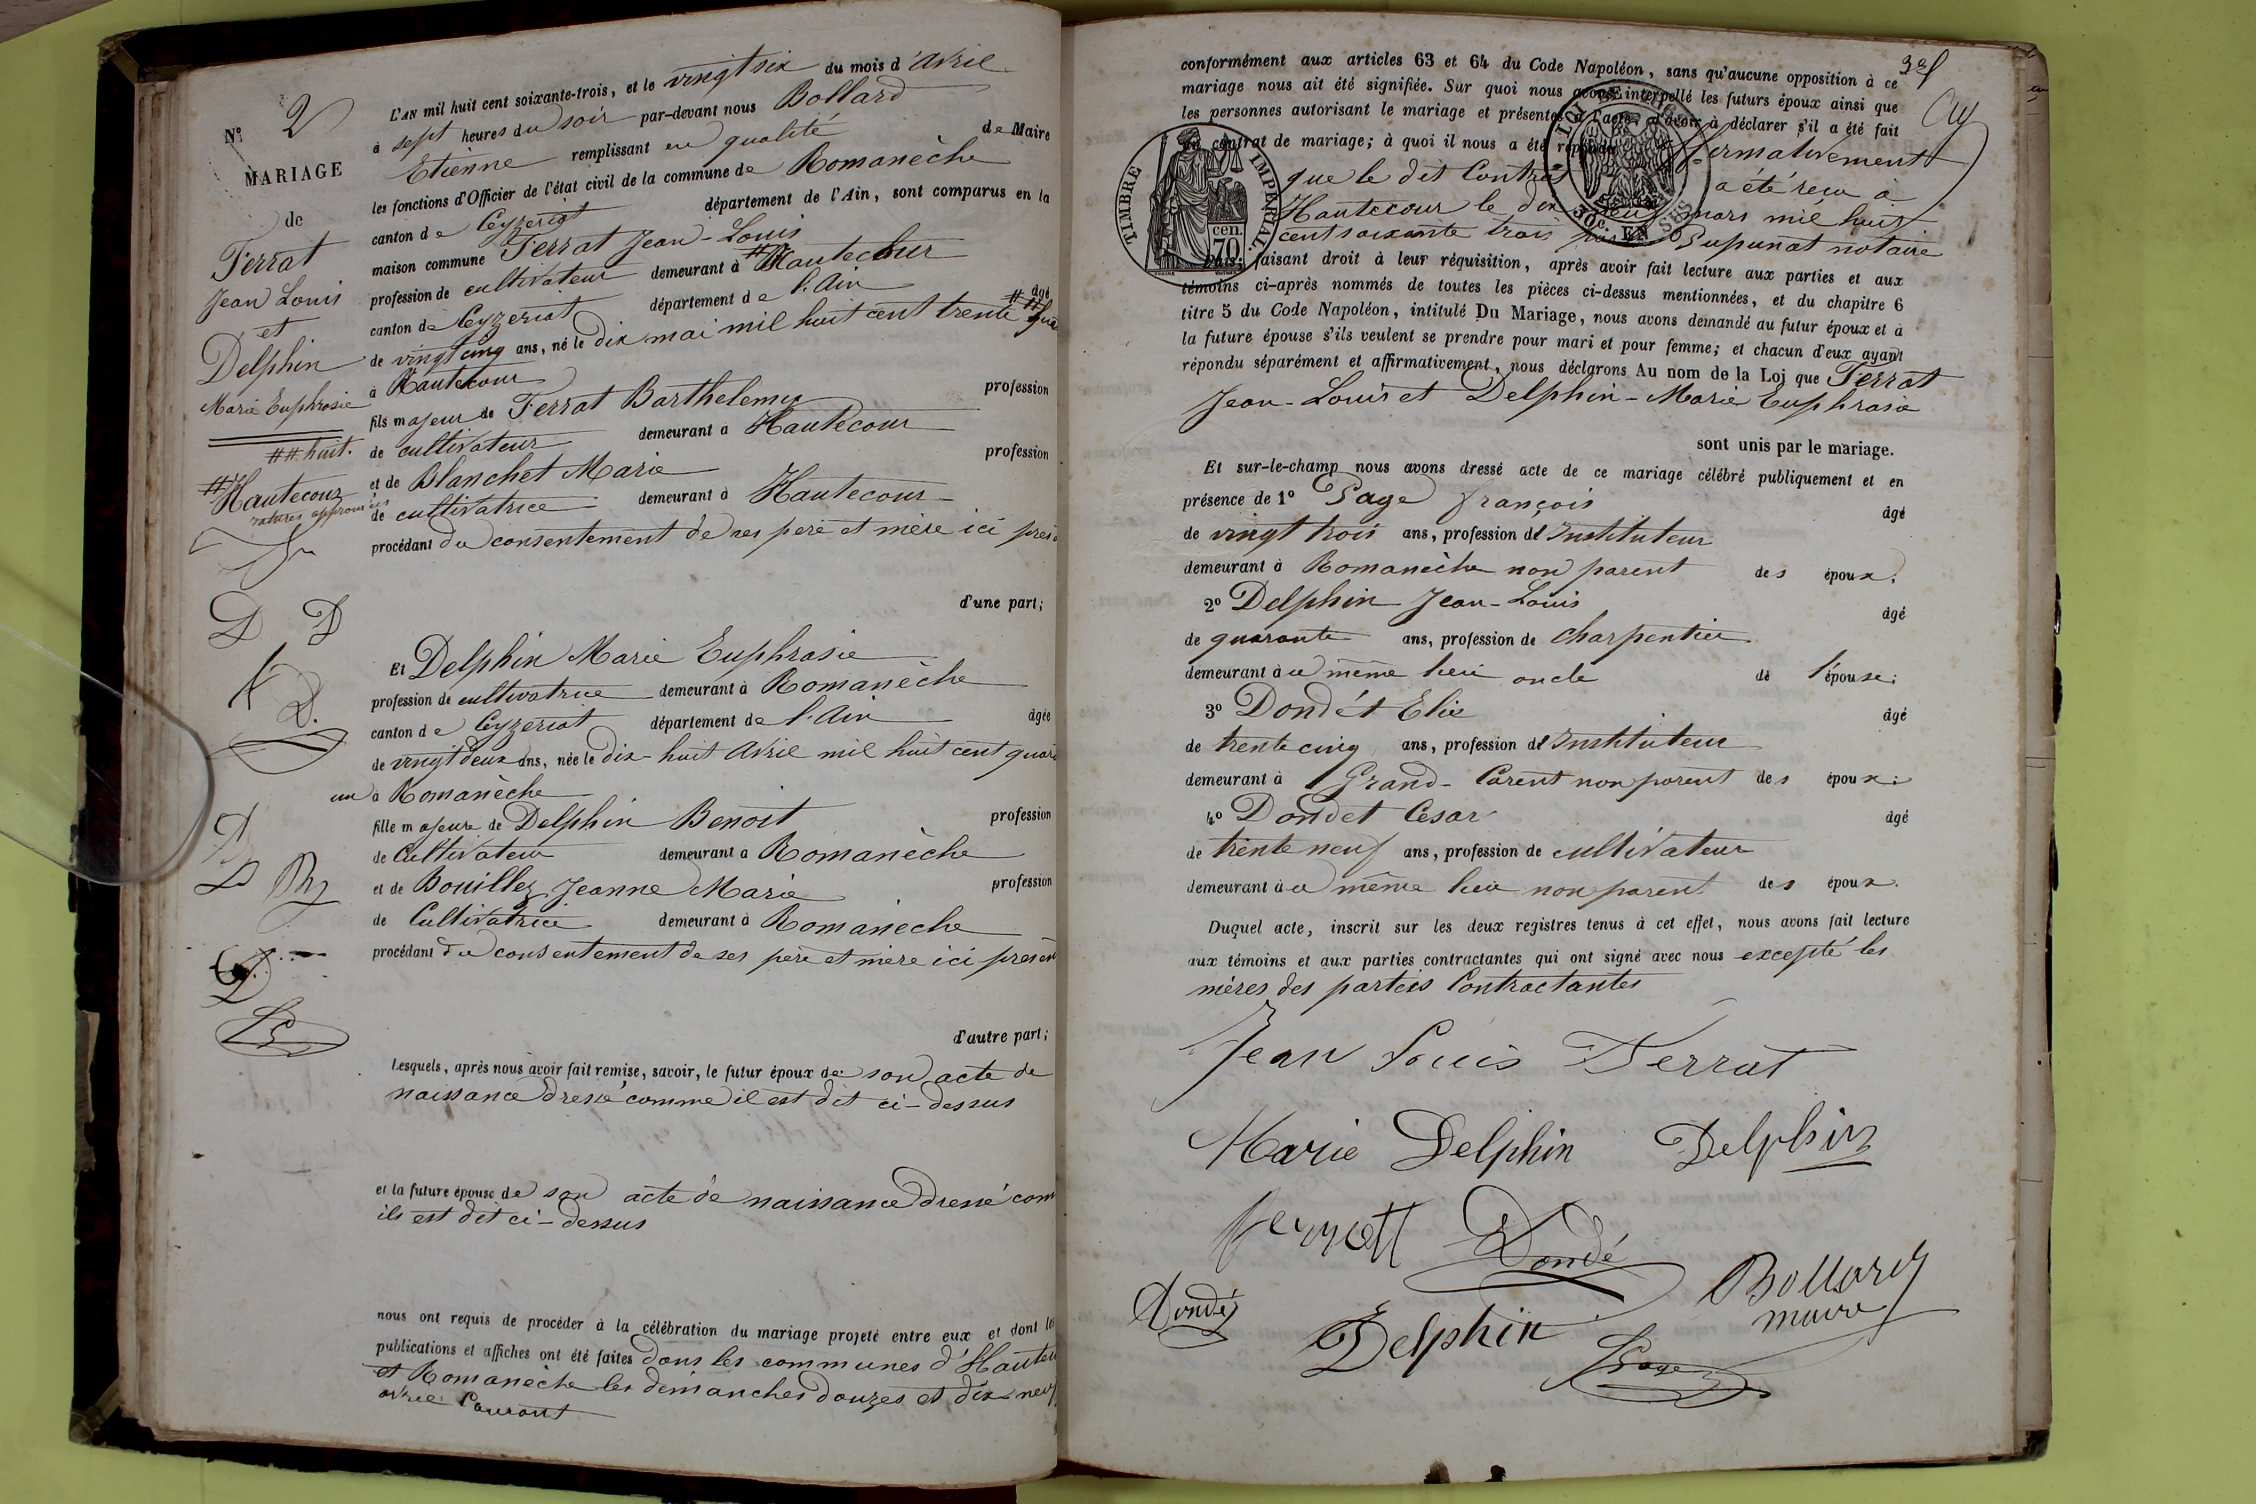 N° 2
MARIAGE
de
Ferrat
Jean Louis
et
Delphin
Marie Euphrosie
## huit.
## Hautecour
ratures approuvées
L'AN mil huit cent soixante-trois, et le vingt six du mois d'avril
à sept heures du soir par-devant nous Bollard
Etienne remplissant en qualité de Maire
les fonctions d'Officier de l'état civil de la commune de Romanèche
canton de Ceyzeriat département de l'Ain, sont comparus en la
maison commune Ferrat Jean-Louis
profession de cultivateur demeurant à Hautecour
canton de Ceyzeriat département de l'Ain âgé
de vingt cinq ans, né le dix mai mil huit cent trente
à Hautecour
fils majeur de Ferrat Barthelemy profession
de cultivateur demeurant à Hautecour
et de Blanchet Marie profession
de cultivatrice demeurant à Hautecour
procédant du consentement de ses père et mère ici
d'une part;
Et Delphin Marie Euphrasie
profession de cultivatrice demeurant à Romanèche
canton de Ceyzeriat département de l'Ain âgée
de vingt deux ans, née le dix-huit avril mil huit cent
un à Romanèche
fille majeure de Delphin Benoit profession
de Cultivateur demeurant à Romanèche
et de Bouillez Jeanne Marie profession
de Cultivatrice demeurant à Romanèche
procédant du consentement de ses père et mère ici
d'autre part;
Lesquels, après nous avoir fait remise, savoir, le futur époux de son acte de
naissance dressé comme il est dit ci-dessus
et la future épouse de son acte de naissance dressé com
ils est dit ci-dessus
nous ont requis de procéder à la célébration du mariage projeté entre eux et dont les
publications et affiches ont été faites dans les communes d'
et Romanèche les dimanches douzes et dix neuf
avril Courant
conformément aux articles 63 et 64 du Code Napoléon, sans qu'aucune opposition à ce
mariage nous ait été signifiée. Sur quoi nous avons interpellé les futurs époux ainsi que
les personnes autorisant le mariage et présentes à l'acte, d'avoir à déclarer s'il a été fait
un contrat de mariage; à quoi il nous a été répondu affirmativement
que le dit Contrat a été reçu à
Hautecour le dix mars mil huit
cent soixante trois par Pupunat notaire
TIMBRE IMPÉRIAL
cen.
70
LOI
30c. EN SUS
Puis, faisant droit à leur réquisition, après avoir fait lecture aux parties et aux
témoins ci-après nommés de toutes les pièces ci-dessus mentionnées, et du chapitre 6
titre 5 du Code Napoléon, intitulé Du Mariage, nous avons demandé au futur époux et à
la future épouse s'ils veulent se prendre pour mari et pour femme; et chacun d'eux ayant
répondu séparément et affirmativement, nous déclarons Au nom de la Loi que Ferrat
Jean-Louis et Delphin-Marie Euphrasie
sont unis par le mariage.
Et sur-le-champ nous avons dressé acte de ce mariage célébré publiquement et en
présence de 1° Page françois âgé
de vingt trois ans, profession d'Instituteur
demeurant à Romanèche non parent des époux;
2° Delphin Jean-Louis âgé
de quarante ans, profession de charpentier
demeurant à ce même lieu oncle de l'épouse;
3° Dondét Elie âgé
de trente cinq ans, profession d'Instituteur
demeurant à Grand-Corent non parent des époux;
4° Dondet César âgé
de trente neuf ans, profession de cultivateur
demeurant à ce même lieu non parent des époux.
Duquel acte, inscrit sur les deux registres tenus à cet effet, nous avons fait lecture
aux témoins et aux parties contractantes qui ont signé avec nous excepté les
mères des parteis Contractantes
Jean Louis Ferrat
Marie Delphin Delphin
Dondé
Bollard
maire
Dondé
Delphin
Page